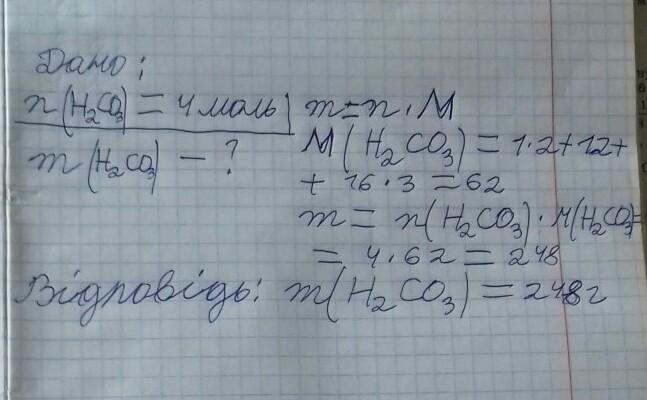 Дано:
n(H₂CO₃) = 4 моль
m(H₂CO₃) - ?
m = n · M
M(H₂CO₃) = 1·2+12+
+ 16·3 = 62
m = n(H₂CO₃) · M(H₂CO₃)=
= 4·62 = 248
Відповідь: m(H₂CO₃) = 248г